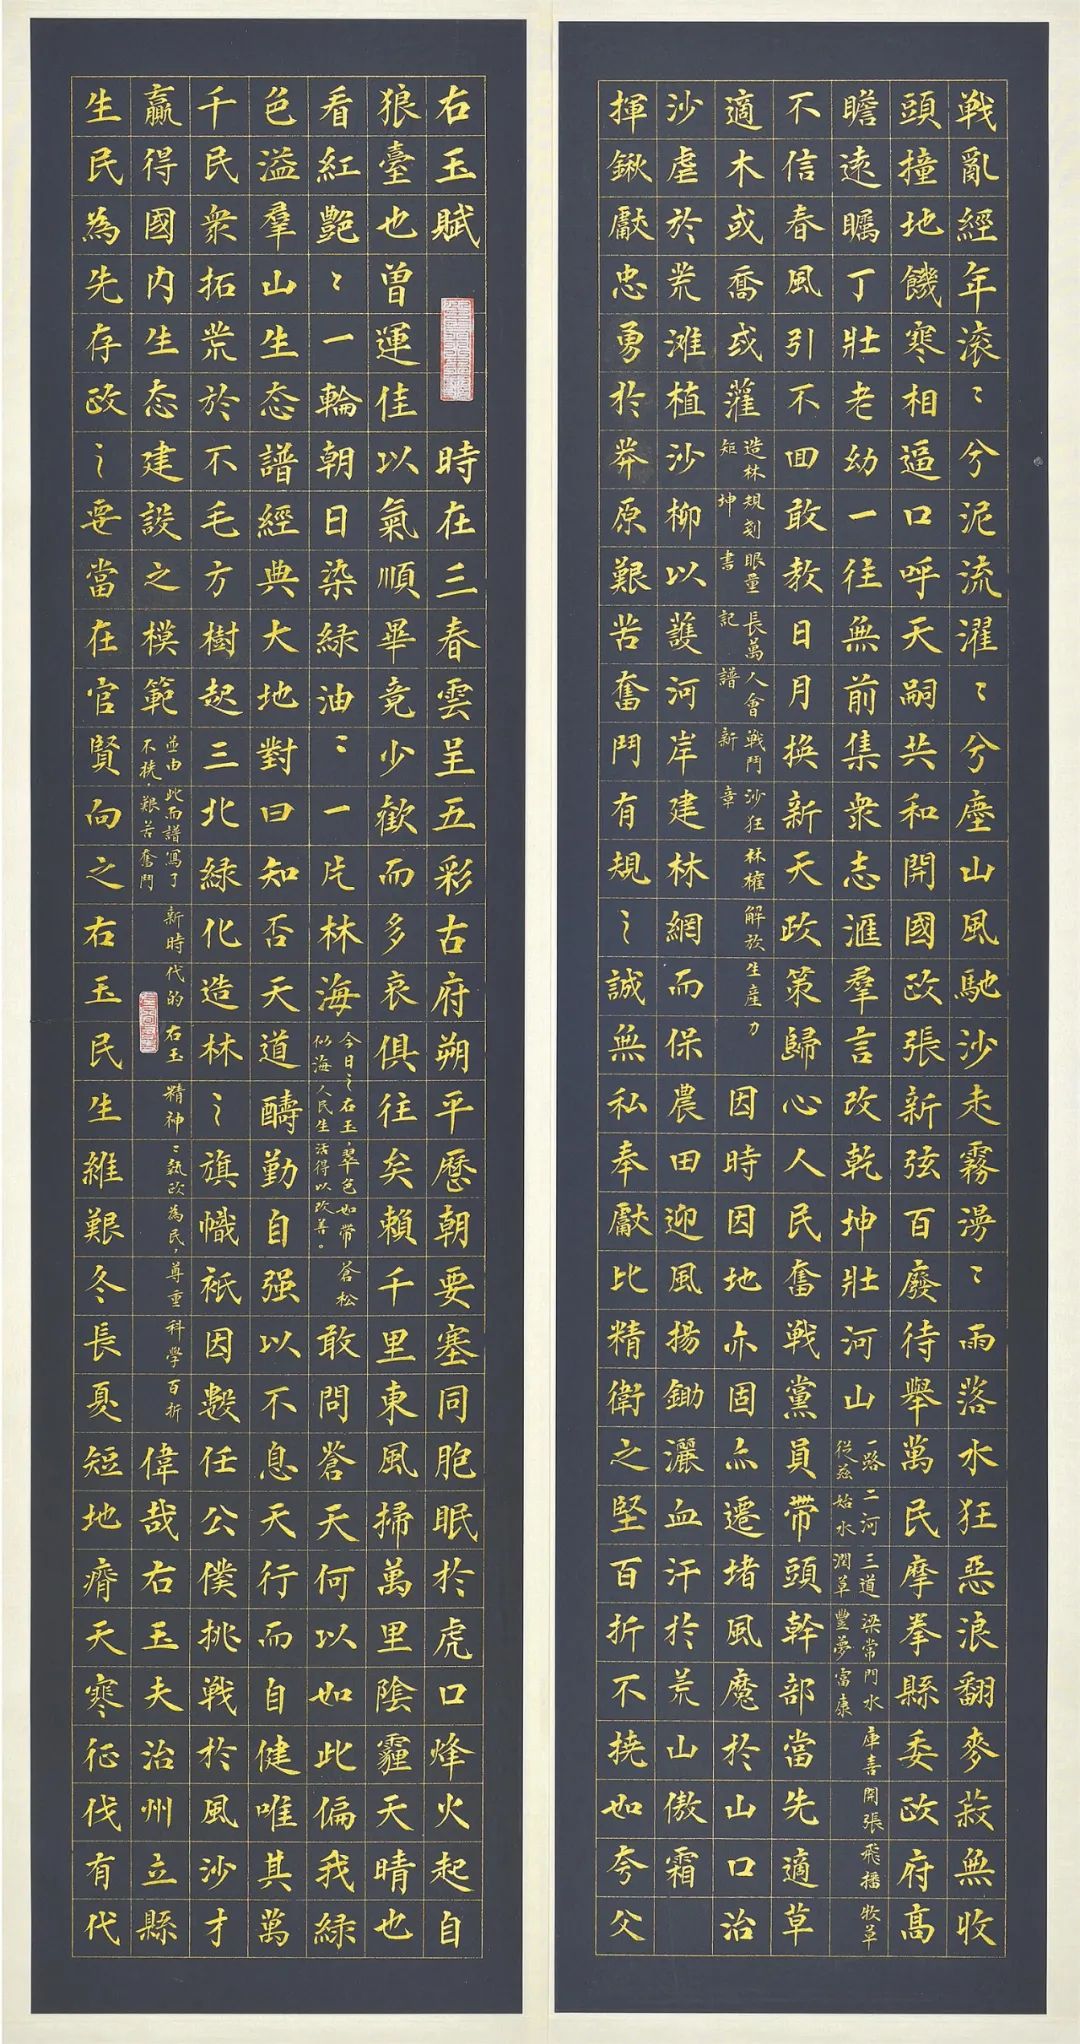 右玉賦 時在三春雲呈五彩古府朔平歷朝要塞同胞眠於虎口烽火起自
狼臺也曾運佳以氣順畢竟少歡而多哀俱往矣賴千里東風掃萬里陰霾天晴也
看紅艷〻一輪朝日染綠油〻一片林海
今日之右玉,翠色如帶蒼松
似海人民生活得以改善。
敢問蒼天何以如此偏我綠
色溢羣山生态譜經典大地對曰知否天道酬勤自强以不息天行而自健唯其萬
千民衆拓荒於不毛方樹起三北綠化造林之旗幟衹因數任公僕挑戰於風沙才
贏得國内生态建設之模範
並由此而譜寫了新時代的右玉精神〻執政為民,尊重科學百折
不撓,艱苦奮鬥
偉哉右玉夫治州立縣
生民為先存政之要當在官賢向之右玉民生維艱冬長夏短地瘠天寒征伐有代
戰亂經年滚〻兮泥流濯〻兮塵山風馳沙走霧漫〻雨落水狂惡浪翻麥菽無收
頭撞地饑寒相逼口呼天嗣共和開國政張新弦百廢待舉萬民摩拳縣委政府高
瞻遠矚丁壯老幼一往無前集衆志滙羣言改乾坤壯河山
一路二河三道梁常門水庫喜開張飛播牧草
從茲始水潤草豐夢富康
不信春風引不回敢教日月换新天政策歸心人民奮戰黨員帶頭幹部當先適草
適木或喬或灌
造林規劃眼量長萬人會戰鬥沙狂林權解放生産力
矩坤書記譜新章
因時因地亦固亦遷堵風魔於山口治
沙虐於荒滩植沙柳以護河岸建林網而保農田迎風揚鋤灑血汗於荒山傲霜
揮鍬獻忠勇於莽原艱苦奮鬥有規之誠無私奉獻比精衛之堅百折不撓如夸父